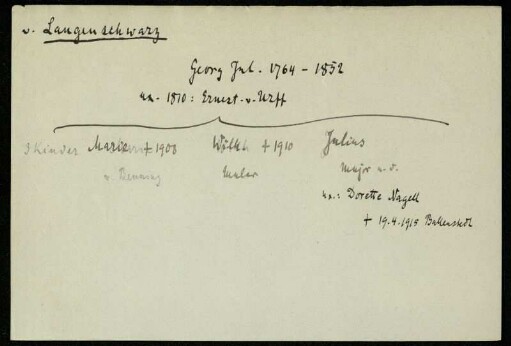 v. Langenschwarz
Georg Jul. 1764 - 1852
ux. 1810: Ernest. v. Urff
3 Kinder Marien † 1908 Wilh. † 1910 Julius
v. Maler Major a. D.
ux.: Dorette Nagell
† 19.4.1915 Ballenstedt